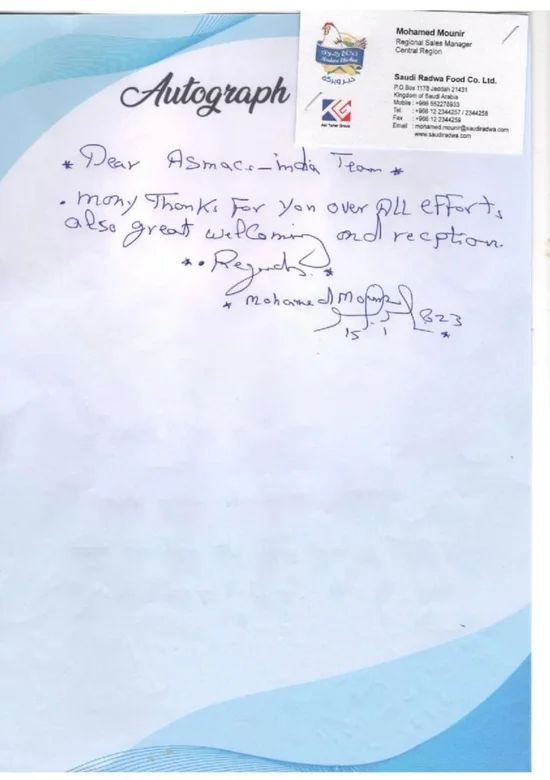 Mohamed Mounir
Regional Sales Manager
Central Region
Saudi Radwa Food Co. Ltd.
P.O.Box 1178 Jeddah 21431
Kingdom of Saudi Arabia
Mobile : +966 552278933
Tel : +966 12 2344257 / 2344258
Fax : +966 12 2344259
Email : mohamed.mounir@saudiradwa.com
www.saudiradwa.com
Autograph
* Dear ASmacs-india Team *
. many Thanks For you over All efforts,
also great welcoming and recption.
*. Regards. *
* Mohamed Mounir
15 1